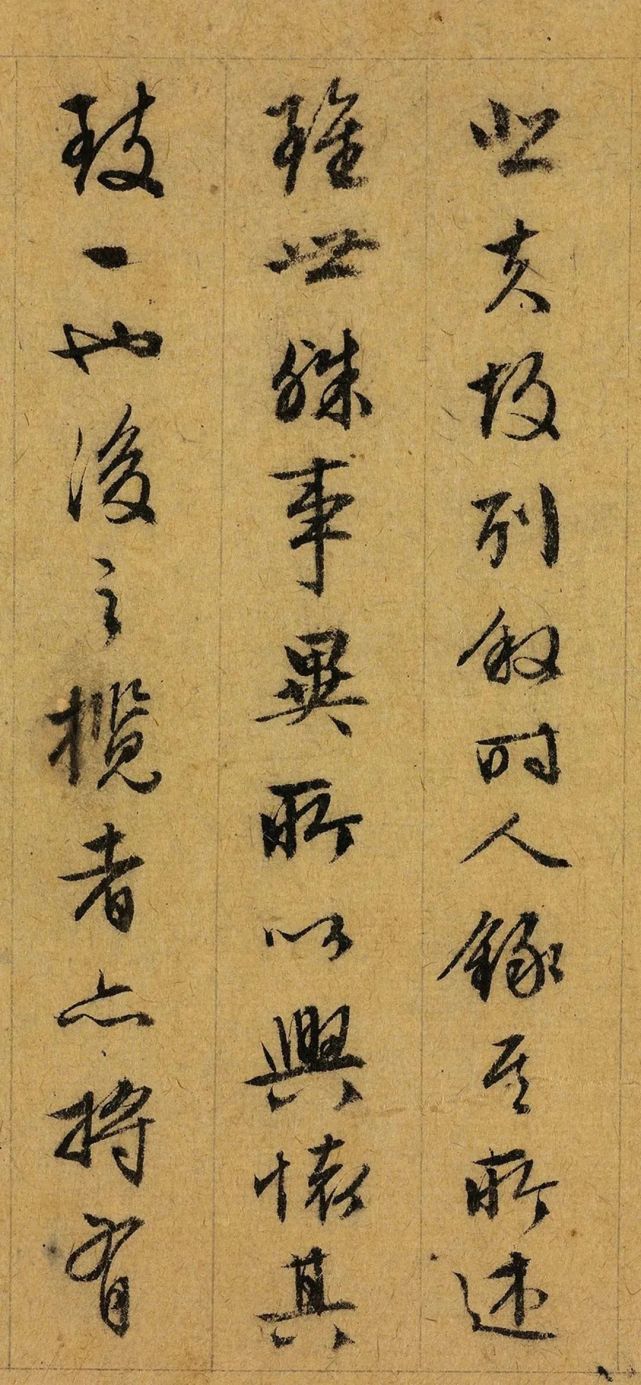 悲夫故列叙时人録其所述
雖世殊事異所以興懷其
致一也後之攬者亦將有